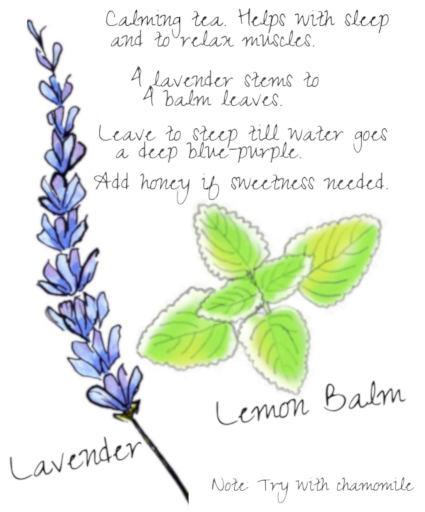 Calming tea. Helps with sleep
and to relax muscles.
4 lavender stems to
4 balm leaves.
Leave to steep till water goes
a deep blue-purple.
Add honey if sweetness needed.
Lemon Balm
Lavender
Note: Try with chamomile